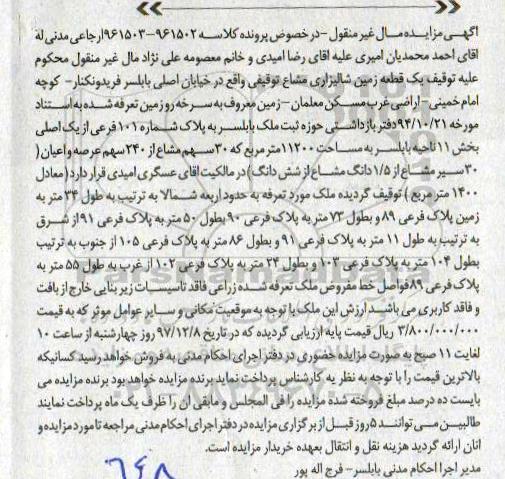 آگهی مزایده مال غیر منقول -در خصوص پرونده کلاسه ۹۶۱۵۰۲-۹۶۱۵۰۳ ارجاعی مدنی له
آقای احمد محمدیان امیری علیه آقای رضا امیدی و خانم معصومه علی نژاد مال غیر منقول محکوم
علیه توقیف یک قطعه زمین شالیزاری مشاع توقیفی واقع در خیابان اصلی بابلسر فریدونکنار- کوچه
امام خمینی-اراضی غرب مسکن معلمان-زمین معروف به سرخه روزمین تعرفه شده به استناد
مورخه ۹۴/۱۰/۲۱ دفتر بازداشتی حوزه ثبت ملک بابلسر به پلاک شماره ۱۰۱ فرعی از یک اصلی
بخش ۱۱ ناحیه بابلسر به مساحت ۱۱۲۰۰ متر مربع که ۳۰ سهم مشاع از ۲۴۰ سهم عرصه و اعیان (
۳۰ سیر مشاع از ۱/۵ دانگ مشاع از شش دانگ) در مالکیت اقای عسگری امیدی قرار دارد (معادل
۱۴۰۰ متر مربع ) توقیف گردیده ملک مورد تعرفه به حدود اربعه شمالا به ترتیب به طول ۳۴ متر به
زمین پلاک فرعی ۸۹ و بطول ۷۳ متر به پلاک فرعی ۹۰ بطول ۵۰ متر به پلاک فرعی ۹۱ از شرق
به ترتیب به طول ۱۱ متر به پلاک فرعی ۹۱ و بطول ۸۶ متر به پلاک فرعی ۱۰۵ از جنوب به ترتیب
بطول ۱۰۴ متر به پلاک فرعی ۱۰۳ و بطول ۲۴ متر به پلاک فرعی ۱۰۲ از غرب به طول ۵۵ متر به
پلاک فرعی ۸۹ فواصل خط مفروض ملک تعرفه شده زراعی فاقد تاسیسات زیر بنایی خارج از بافت
و فاقد کاربری می باشد ارزش این ملک با توجه به موقعیت مکانی و سایر عوامل موثر که به قیمت
۳/۸۰۰/۰۰۰/۰۰۰ ریال قیمت پایه ارزیابی گردیده که در تاریخ ۹۷/۱۲/۸ روز چهارشنبه از ساعت ۱۰
لغایت ۱۱ صبح به صورت مزایده حضوری در دفتر اجرای احکام مدنی به فروش خواهد رسید کسانیکه
بالاترین قیمت را با توجه به نظر یه کارشناس پرداخت نماید برنده مزایده خواهد بود برنده مزایده می
بایست ده درصد مبلغ فروخته شده مزایده را فی المجلس و مابقی ان را ظرف یک ماه پرداخت نمایند
طالبین می توانند ۵ روز قبل از برگزاری مزایده در دفتر اجرای احکام مدنی مراجعه تا مورد مزایده و
انان ارائه گردید هزینه نقل و انتقال بعهده خریدار مزایده است.
مدیر اجرا احکام مدنی بابلسر- فرج اله پور
۶۴۸